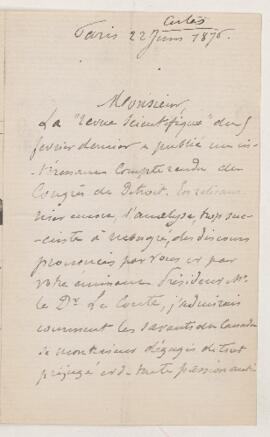 Cutés
Paris 22 Juin 1876.
Monsieur
La "revue Scientifique" du 5
février dernier a publié un in-
téressant compte rendu du
Congrès de Detroit. En relisant
hier encore, l'analyse, trop suc-
cincte à mon gré, des discours
prononcés par vous et par
votre éminent Président Mr.
le Dr. Le Conte, j'admirais
comment les savants du Canada
se montraient dégagés de tout
préjugé et de toute passion